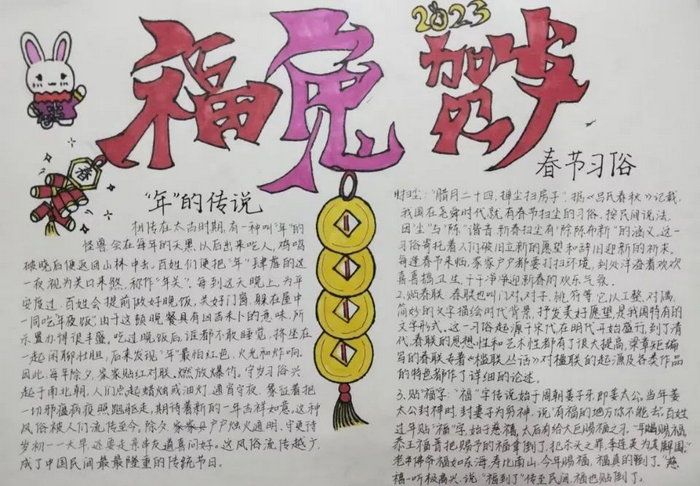 2023
福兔贺岁
春
"年"的传说
相传在太古时期,有一种叫"年"的
怪兽会在每年的天黑以后出来吃人,鸡鸣
破晓后便返回山林中去。百姓们便把"年"肆虐的这
一夜视为关口来熬,称作"年关",每到这天晚上,为平
安度过,百姓会提前做好晚饭,关好门窗,躲在屋中
一同吃"年夜饭"。由于这顿晚餐具有凶吉未卜的意味,所
示置办得很丰盛,吃过晚饭后,谁都不敢睡觉,挤坐在
一起闲聊壮胆,后来发现"年"最怕红色、火光和炸响,
因此,每年除夕,家家贴红对联、燃放爆竹。守岁习俗兴
起于南北朝,人们点起蜡烛或油灯,通宵守夜,象征着把
一切邪瘟病疫照跑驱走,期待着新的一年吉祥如意,这种
风俗被人们流传至今,除夕,家家户户烛火通明,守更待
岁初一一大早,还要走亲串友道喜问好。这风俗流传越广,
成了中国民间最最隆重的传统节日。
春节习俗
扫尘:"腊月二十四,掸尘扫房子",据《吕氏春秋》记载,
我国在尧舜时代就有春节扫尘的习俗。按民间说法,
因"尘"与"陈"谐音,新春扫尘有"除陈布新"的涵义,这一
习俗寄托着人们破旧立新的愿望和辞旧迎新的祈求。
每逢春节来临,家家户户都要打扫环境,到处洋溢着欢欢
喜喜搞卫生、干干净净迎新春的欢乐气氛。
2.贴春联,春联也叫门对、对子、桃符等它以工整、对偶、
简妙的文字描绘时代背景,抒发美好愿望,是我国特有的
文学形式。这一习俗起源于宋代在明代开始盛行,到了清
代,春联的思想性和艺术性都有了很大提高,梁章矩编
写的春联专著《槛联丛话》对楹联的起源及各类作品
的特色都作了详细的论述。
3.贴"福"字:"福"字传说始于周朝姜子牙即姜太公,当年姜
太公封神时,封妻子为穷神,说:有福的地方你不能去,百姓
过年贴"福"字,始于慈禧,太后有给大臣赐福之示,"年赐福,
恭王福晋把赐予的福拿倒了,犯杀头之罪,李连英为其解围:"
老牛佛爷福如东海,寿比南山,今年赐福,福真的到了。"慈
禧一听极高兴,说:"福到了"传至民间,福也贴倒了。